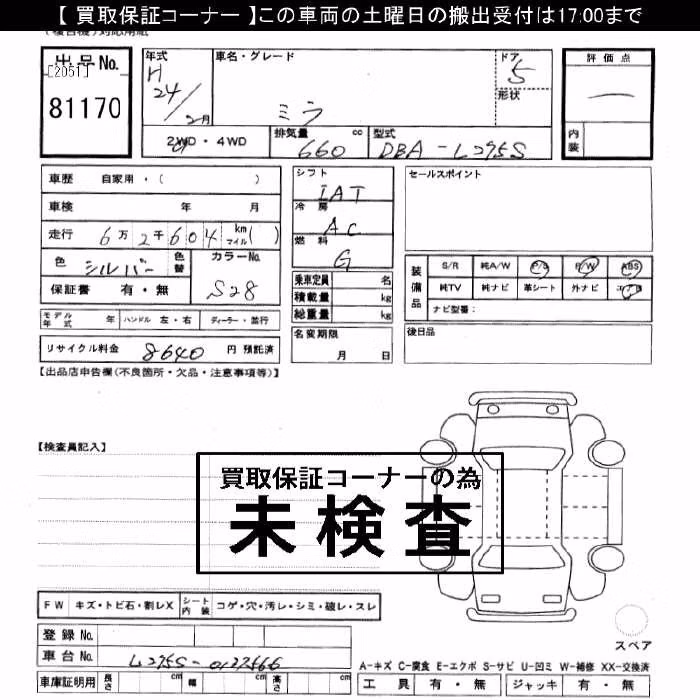 【 買取保証コーナー 】この車両の土曜日の搬出受付は17:00まで
出品No.
[2051]
81170
年式
H
24/2月
車名・グレード
ミラ
ドア
5
形状
評価点
内装
2WD・4WD
排気量 cc
660
型式
DBA-L275S
車歴 自家用・( )
車検 年 月
走行 6万2千604 km マイル( )
色 シルバー 色替
カラーNo.
S28
保証書 有・無
シフト
IAT
冷房
AC
燃料
G
乗車定員 名
積載量 kg
総重量 kg
セールスポイント
装備品
S/R 純A/W P/S P/W ABS
純TV 純ナビ 革シート 外ナビ エアB
ナビ型番:
モデル年式 年 ハンドル 左・右 ディーラー・並行
名変期限
月 日
後日品
リサイクル料金 8640 円 預託済
【出品店申告欄(不良箇所・欠品・注意事項等)】
【検査員記入】
買取保証コーナーの為
未検査
FW キズ・トビ石・割レX シート内装 コゲ・穴・汚レ・シミ・破レ・スレ
登録No.
車台No. L275S-0127566
スペア
A-キズ C-腐食 E-エクボ S-サビ U-凹ミ W-補修 XX-交換済
車庫証明用 長さ cm 幅 cm 高さ cm
工具 有・無 ジャッキ 有・無